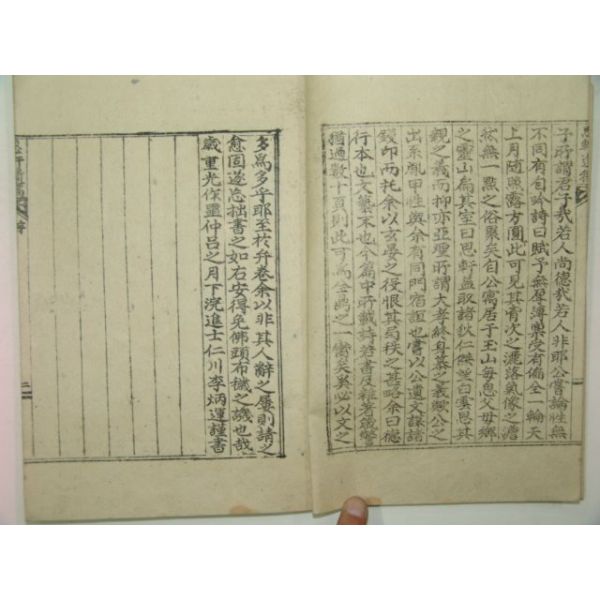 子所謂君子哉若人尚德哉若人非耶公嘗論性無
不同有旬吟詩曰賦予無厚薄稟受有偏全一輪天
上月隨照露方圓此可見其胷次之洒落氣像之澹
然無一點之俗累矣自公寓居于玉山每思父母鄉
之靈山扁其室曰思軒盖取諸狄仁傑望白雲思其
親之義而抑亦亞聖所謂大孝終身慕之義歟公之
出系胤甲性與余有同門宿誼也嘗以公遺文謀諸
鋟印而托余以玄晏之役恨其局秩之甚略余曰德
行本也文藝末也今篇中所載詩若書及雜著幾警
猶過數十頁則此可爲全鼎之一臠矣奚必以文之
多爲多乎耶至於弁卷余以非其人辭之屢則請之
愈固遂忘拙書之如右安得免佛頭布穢之譏也哉
歲重光作噩仲呂之月下浣進士仁川李炳運謹書